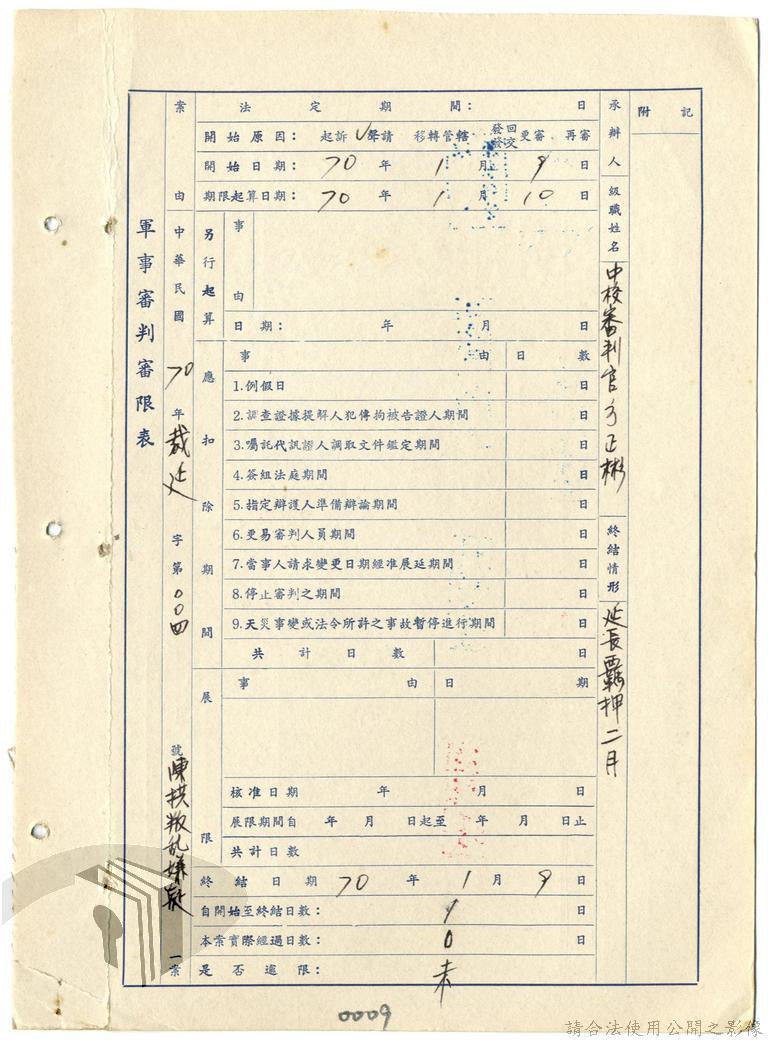 軍事審判審限表
案由 中華民國 70 年 裁延 字第 00四 號 陳拱叛乱嫌疑 一案
法定期間： 日
開始原因： 起訴 V聲請 移轉管轄 發回發交更審 再審
開始日期： 70 年 1 月 9 日
期限起算日期： 70 年 1 月 10 日
另行起算
事由
日期： 年 月 日
應扣除期間
事由 日數
1.例假日 日
2.調查證據提解人犯傳拘被告證人期間 日
3.囑託代訊證人調取文件鑑定期間 日
4.簽組法庭期間 日
5.指定辯護人準備辯論期間 日
6.更易審判人員期間 日
7.當事人請求變更日期經准展延期間 日
8.停止審判之期間 日
9.天災事變或法令所許之事故暫停進行期間 日
共計日數 日
展限
事由 日期
核准日期 年 月 日
展限期間自 年 月 日起至 年 月 日止
共計日數
終結日期 70 年 1 月 9 日
自開始至終結日數： 1 日
本案實際經過日數： 0 日
是否逾限： 未
承辦人 級職姓名 中校審判官方正彬
終結情形 延長羈押二月
附記
0009
請合法使用公開之影像